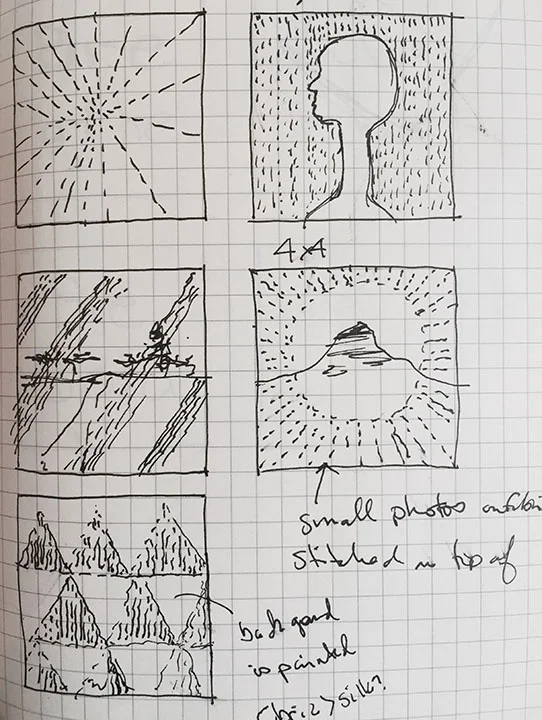 4x4
small photos on fabric
stitched on top of
background
is painted
fabric > silk?